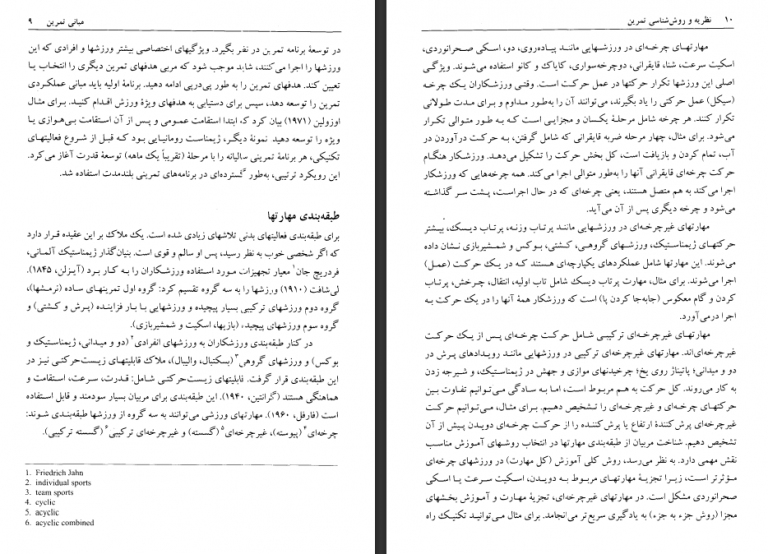 مبانی تمرین ۹
در توسعهٔ برنامه تمرین در نظر بگیرد. ویژگیهای اختصاصی بیشتر ورزشها و افرادی که این
ورزشها را اجرا می‌کنند، شاید موجب شود که مربی هدفهای تمرین دیگری را انتخاب یا
تعیین کند. هدفهای تمرین را به طور پی‌درپی ادامه دهید. برنامهٔ اولیه باید مبانی عملکردی
تمرین را توسعه دهد، سپس برای دستیابی به هدفهای ویژهٔ ورزش اقدام کنید. برای مثال
اوزولین (۱۹۷۱) بیان کرد که، ابتدا استقامت عمومی و پس از آن استقامت بی‌هوازی یا
ویژه را توسعه دهید. نمونهٔ دیگر، ژیمناست رومانیایی بود که قبل از شروع فعالیتهای
تکنیکی، هر برنامهٔ تمرینی سالیانه را با مرحلهٔ (تقریباً یک ماهه) توسعهٔ قدرت آغاز می‌کرد.
این رویکرد ترتیبی، به‌طور گسترده‌ای در برنامه‌های تمرینی بلندمدت استفاده شد.
طبقه‌بندی مهارتها
برای طبقه‌بندی فعالیتهای بدنی تلاشهای زیادی شده است. یک ملاک بر این عقیده قرار دارد
که اگر شخصی خوب به نظر رسید، پس او سالم و قوی است. بنیان‌گذار ژیمناستیک آلمانی،
فردریچ جان۱ معیار تجهیزات مورد استفاده ورزشکاران را به کار برد (آیزلن، ۱۸۴۵).
لی‌شافت (۱۹۱۰) ورزشها را به سه گروه تقسیم کرد: گروه اول تمرینهای ساده (نرمشها)،
گروه دوم ورزشهای ترکیبی بسیار پیچیده و ورزشهایی با بار فزاینده (پرش و کشتی) و
گروه سوم ورزشهای پیچیده، (بازیها، اسکیت و شمشیربازی).
در کنار طبقه‌بندی ورزشکاران به ورزشهای انفرادی۲ (دو و میدانی، ژیمناستیک و
بوکس) و ورزشهای گروهی۳ (بسکتبال، والیبال)، ملاک قابلیتهای زیست‌حرکتی نیز در
این طبقه‌بندی قرار گرفت. قابلیتهای زیست‌حرکتی شامل: قدرت، سرعت، استقامت و
هماهنگی هستند (گرانتین، ۱۹۴۰). این طبقه‌بندی برای مربیان بسیار سودمند و قابل استفاده
است (فارفل، ۱۹۶۰). مهارتهای ورزشی می‌توانند به سه گروه از ورزشها طبقه‌بندی شوند:
چرخه‌ای۴ (پیوسته)، غیرچرخه‌ای۵ (گسسته) و غیرچرخه‌ای ترکیبی۶ (گسسته ترکیبی).
1. Friedrich Jahn
2. individual sports
3. team sports
4. cyclic
5. acyclic
6. acyclic combined
۱۰ نظریه و روش‌شناسی تمرین
مهارتهای چرخه‌ای در ورزشهایی مانند پیاده‌روی، دو، اسکی صحرانوردی،
اسکیت سرعت، شنا، قایقرانی، دوچرخه‌سواری، کایاک و کانو استفاده می‌شوند. ویژگی
اصلی این ورزشها تکرار حرکتها در عمل حرکت است. وقتی ورزشکاران یک چرخه
(سیکل) عمل حرکتی را یاد بگیرند، می‌توانند آن را به‌طور مداوم و برای مدت طولانی
تکرار کنند. هر چرخه شامل مرحلهٔ یکسان و مجزایی است که به طور متوالی تکرار
می‌شود. برای مثال، چهار مرحله ضربه قایقرانی که شامل گرفتن، به حرکت درآوردن در
آب، تمام کردن و بازیافت است، کل بخش حرکت را تشکیل می‌دهد. ورزشکار هنگام
حرکت چرخه‌ای قایقرانی آنها را به‌طور متوالی اجرا می‌کند. همه چرخه‌هایی که ورزشکار
اجرا می‌کند به هم متصل هستند، یعنی چرخه‌ای که در حال اجراست، پشت سر گذاشته
می‌شود و چرخه دیگری پس از آن می‌آید.
مهارتهای غیرچرخه‌ای در ورزشهایی مانند پرتاب وزنه، پرتاب دیسک، بیشتر
حرکتهای ژیمناستیک، ورزشهای گروهی، کشتی، بوکس و شمشیربازی نشان داده
می‌شوند. این مهارتها شامل عملکردهای یکپارچه‌ای هستند که در یک حرکت (عمل)
اجرا می‌شوند. برای مثال، مهارت پرتاب دیسک شامل تاب اولیه، انتقال، چرخش، پرتاب
کردن و گام معکوس (جابه‌جا کردن پا) است که ورزشکار همهٔ آنها را در یک حرکت به
اجرا درمی‌آورد.
مهارتهای غیرچرخه‌ای ترکیبی شامل حرکت چرخه‌ای پس از یک حرکت
غیرچرخه‌ای‌اند. مهارتهای غیرچرخه‌ای ترکیبی در ورزشهایی مانند رویدادهای پرش در
دو و میدانی؛ پاتیناژ روی یخ؛ چرخیدنهای موازی و جهش در ژیمناستیک، و شیرجه زدن
به کار می‌روند. کل حرکت به هم مربوط است، اما به سادگی می‌توانیم تفاوت بین
حرکتهای چرخه‌ای و غیرچرخه‌ای را تشخیص دهیم. برای مثال، می‌توانیم حرکت
غیرچرخه‌ای پرش‌کنندهٔ ارتفاع یا پرش‌کننده را از حرکت چرخه‌ای دویدن پیش از آن
تشخیص دهیم. شناخت مربیان از طبقه‌بندی مهارتها در انتخاب روشهای آموزش مناسب
نقش مهمی دارد. به نظر می‌رسد، روش کلی آموزش (کل مهارت) در ورزشهای چرخه‌ای
مؤثرتر است، زیرا تجزیهٔ مهارتهای مربوط به دویدن، اسکیت سرعت یا اسکی
صحرانوردی مشکل است. در مهارتهای غیرچرخه‌ای، تجزیهٔ مهارت و آموزش بخشهای
مجزا (روش جزء به جزء) به یادگیری سریع‌تر می‌انجامد. برای مثال می‌توانید تکنیک راه